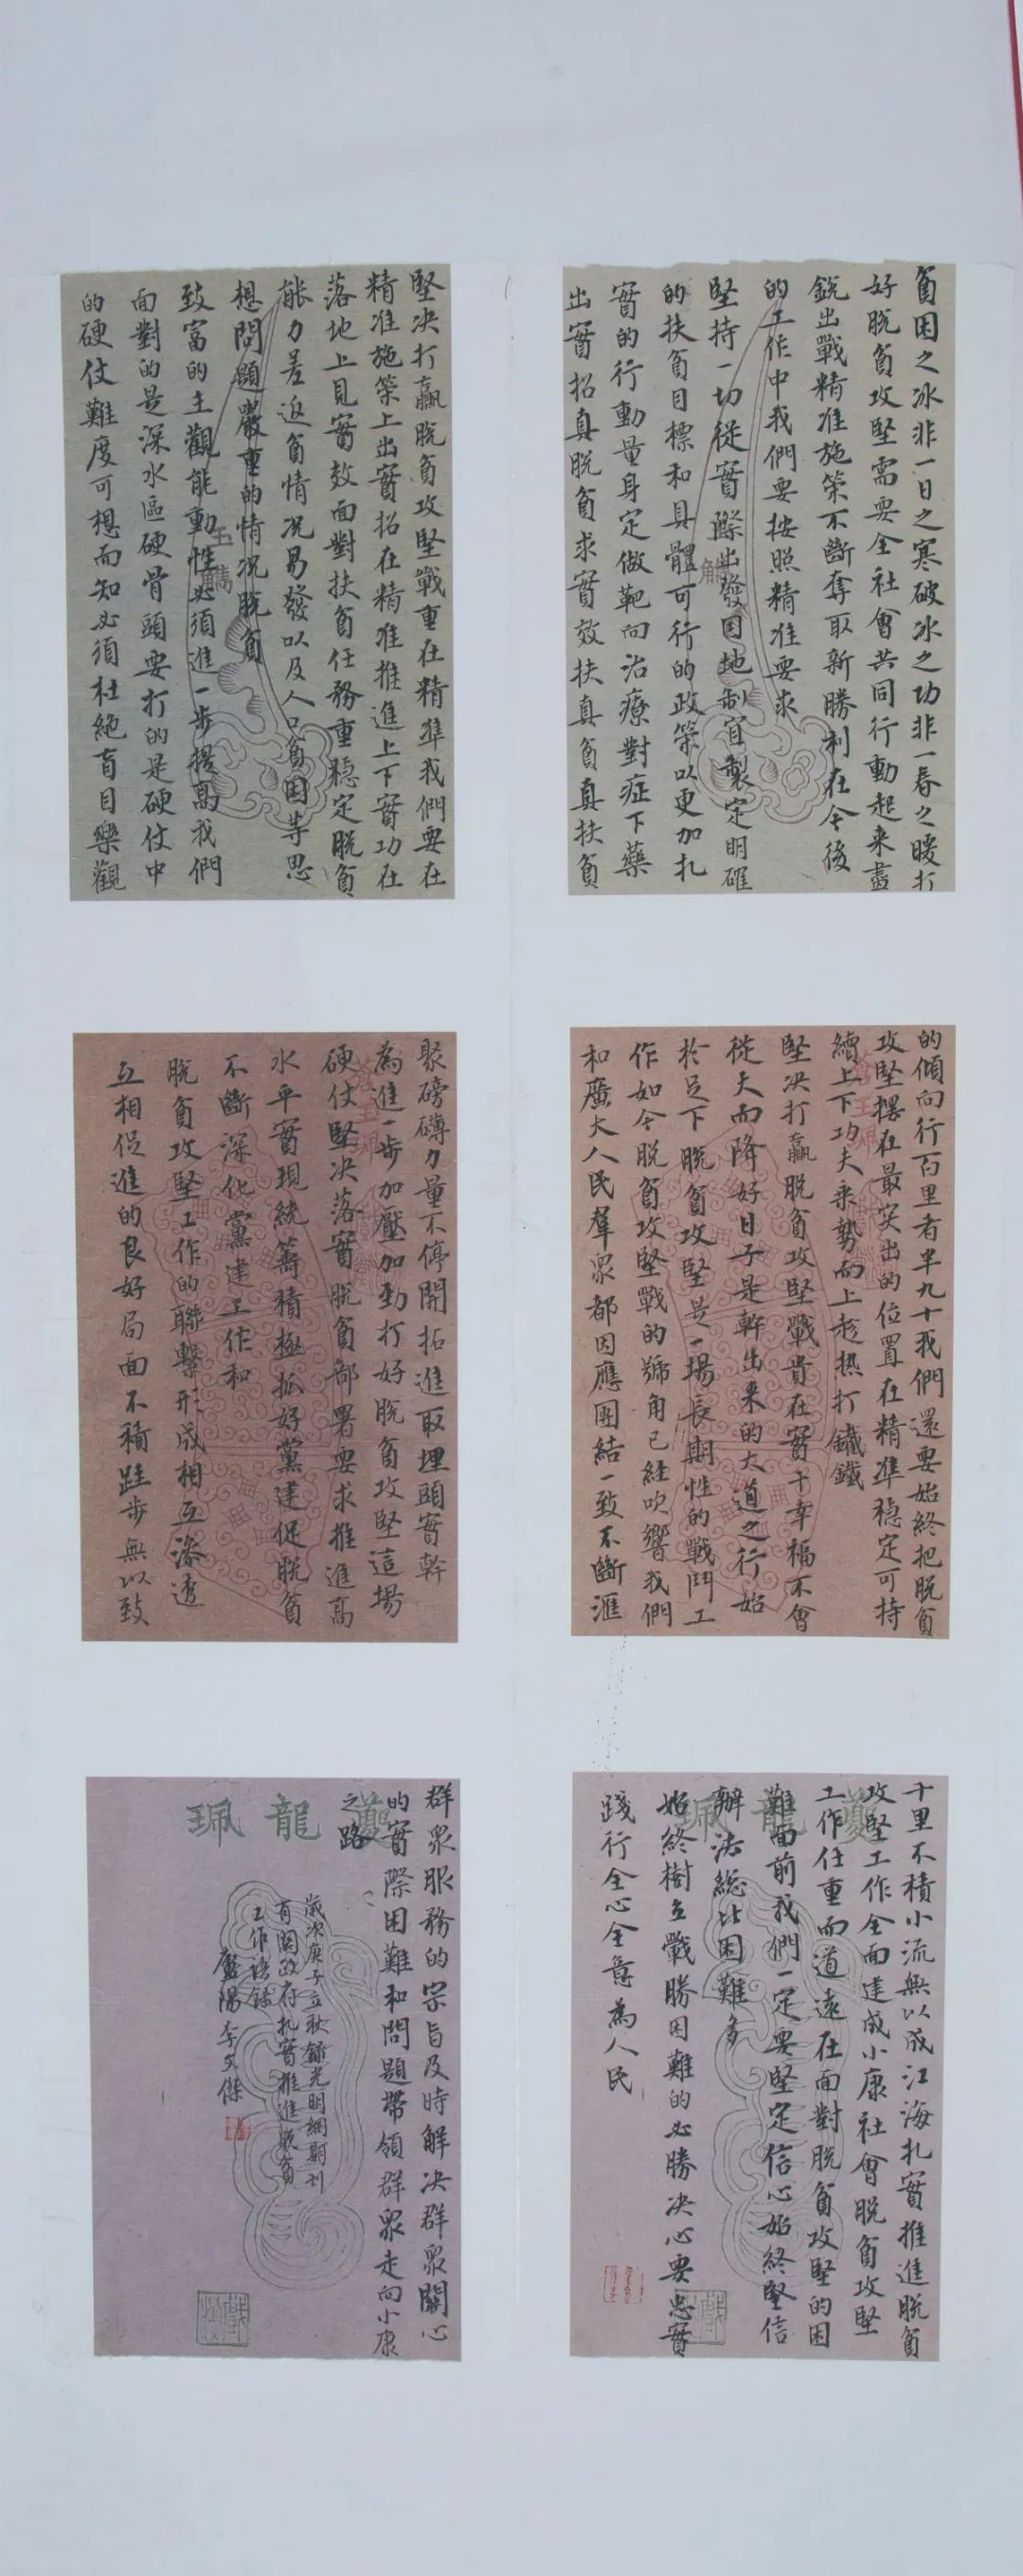 貧困之冰非一日之寒破冰之功非一春之暖打
好脫貧攻堅需要全社會共同行動起来盡
銳出戰精准施策不斷奪取新勝利在今後
的工作中我們要按照精准要求
堅持一切從實際出發因地制宜製定明確
的扶貧目標和具體可行的政策以更加扎
實的行動量身定做靶向治療對症下藥
出實招真脫貧求實效扶真貧真扶貧
堅决打贏脫貧攻堅戰重在精準我們要在
精准施策上出實招在精准推進上下實功在
落地上見實效面對扶貧任務重穩定脫貧
能力差返貧情况易發以及人口貧困等思
想問題嚴重的情况脫貧
致富的主觀能動性必須進一步提高我們
面對的是深水區硬骨頭要打的是硬仗中
的硬仗難度可想而知必須杜絶盲目樂觀
的傾向行百里者半九十我們還要始終把脫貧
攻堅擺在最突出的位置在精準穩定可持
續上下功夫乘勢而上趁热打鐵鐵
堅决打贏脫貧攻堅戰貴在實干幸福不會
從天而降好日子是幹出来的大道之行始
於足下脫貧攻堅是一場長期性的戰鬥工
作如今脫貧攻堅戰的號角已經吹響我們
和廣大人民羣眾都因應團結一致不斷滙
聚磅礴力量不停開拓進取埋頭實幹
為進一步加壓加勁打好脫貧攻堅這場
硬仗堅决落實脫貧部署要求推進高
水平實現統籌積極抓好黨建促脫貧
不斷深化黨建工作和
脫貧攻堅工作的聯繫形成相互滲透
互相促進的良好局面不積跬步無以致
千里不積小流無以成江海扎實推進脫貧
攻堅工作全面建成小康社會脫貧攻堅
工作任重而道遠在面對脫貧攻堅的困
難面前我們一定要堅定信心始終堅信
辦法總比困難多
始終樹立戰勝困難的必勝决心要忠實
踐行全心全意為人民
群眾服務的宗旨及時解决群眾關心
的實際困難和問題帶領群眾走向小康
之路
歲次庚子立秋錄光明網期刊
有關政府扎實推進脫貧
工作語錄
盬陽李文傑
夔龍珮
夔龍珮